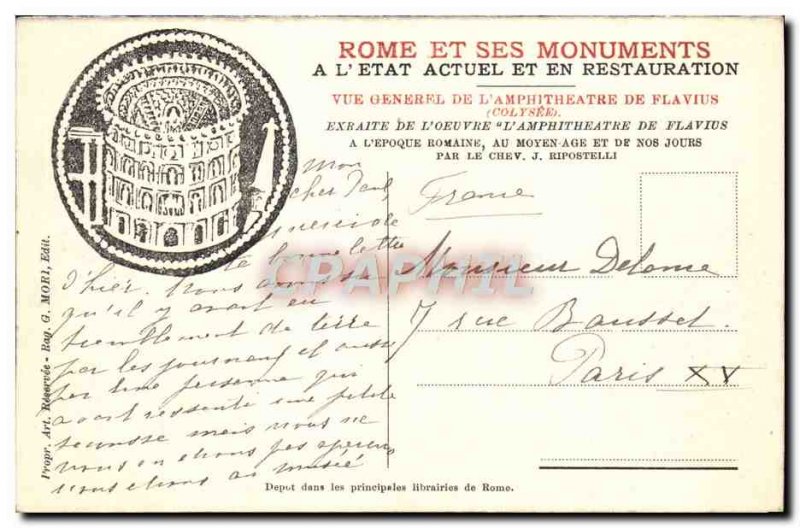 ROME ET SES MONUMENTS
A L'ETAT ACTUEL ET EN RESTAURATION
VUE GENEREL DE L'AMPHITHEATRE DE FLAVIUS
(COLYSÉE).
EXRAITE DE L'OEUVRE "L'AMPHITHEATRE DE FLAVIUS
A L'EPOQUE ROMAINE, AU MOYEN-AGE ET DE NOS JOURS
PAR LE CHEV. J. RIPOSTELLI
Mon
cher Paul,
merci de
ta bonne lettre
d'hier. Nous avons su
qu'il y avait eu
tremblement de terre
par les journaux et aussi
par une personne qui
avait ressenti une petite
secousse mais nous ne
nous en étions pas aperçus
nous étions au musée
France
Monsieur Delome
7 rue Bausset.
Paris XV
CPAPHIL
Propr. Art. Réservée - Rag. G. MORI, Edit.
Depot dans les principales librairies de Rome.